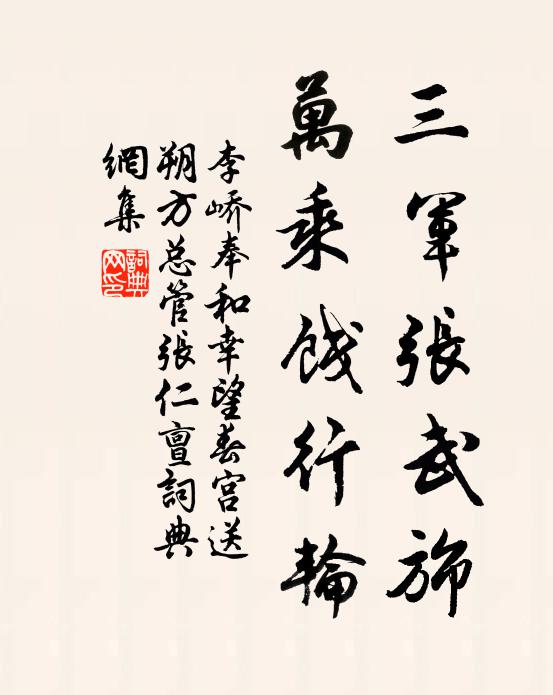 三军張武旆
萬乘餞行輪
李嶠奉和幸望春宫送
朔方总管張仁亶詞典
網集
詞典网印